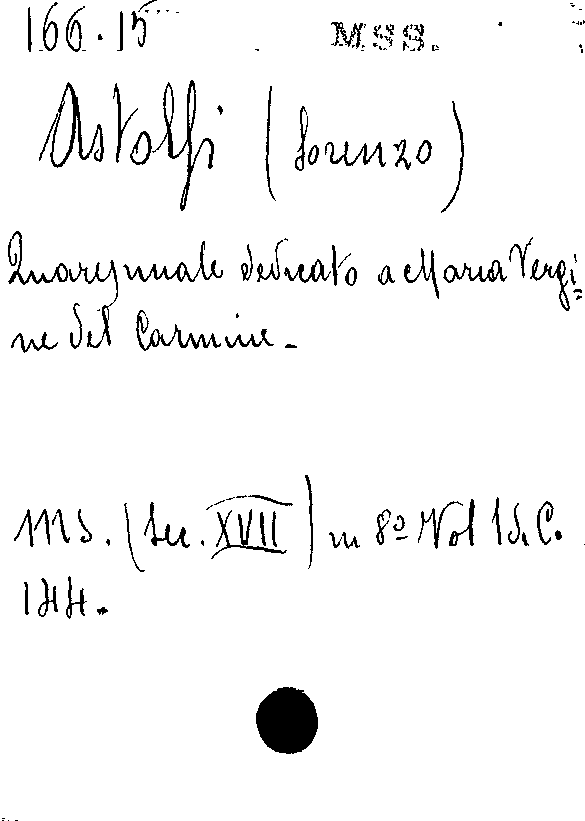 166.15 MSS.
Astolfi (Lorenzo)
Quaresimale dedicato a Maria Vergi=
ne del Carmine.-
MS. (Sec. XVII) in 8º Vol 1 di C.
144.